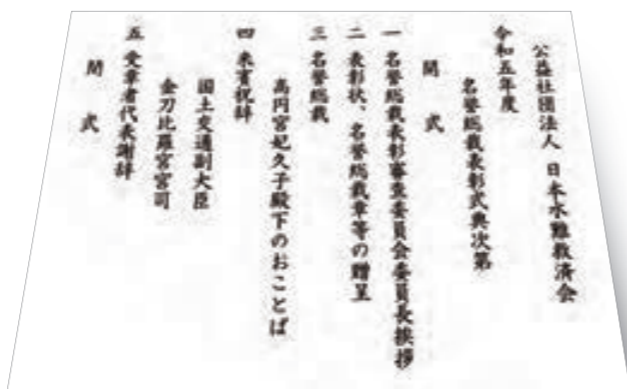 公益社団法人 日本水難救済会
令和五年度
名誉総裁表彰式典次第
開 式
一 名誉総裁表彰審査委員会委員長挨拶
二 表彰状、名誉総裁章等の贈呈
三 名誉総裁
高円宮妃久子殿下のおことば
四 来賓祝辞
国土交通副大臣
金刀比羅宮宮司
五 受章者代表謝辞
閉 式